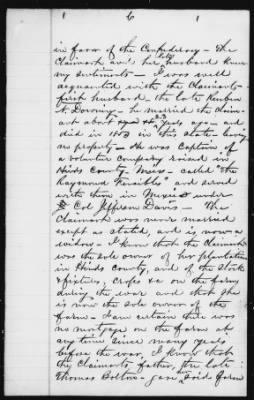 6
in favor of the Confederacy - The
Claimant and her late husband knew
my sentiments - I was well
acquainted with the Claimants
first husband the late Reuben
A. Downing - he married the claim-
ant about 23 years ago - and
died in 1853 in this state leaving
no property - He was Captain of
a volunteer company raised in
Hinds County, Miss - called "the
Raymond Fencibles" and served
with them in Mexico under
Col Jefferson Davis - The
Claimant was never married
except as stated, and is now a
widow - I know that the Claimant
was the sole owner of her plantation
in Hinds County, and of the stock
& fixtures, crops &c on the farms
during the war and that she
is now the sole owner of the
farm - I am certain there was
no mortgage on the farm at
any time since many years
before the war, I know that
the Claimants father, the late
Thomas Bolton - gave said farm